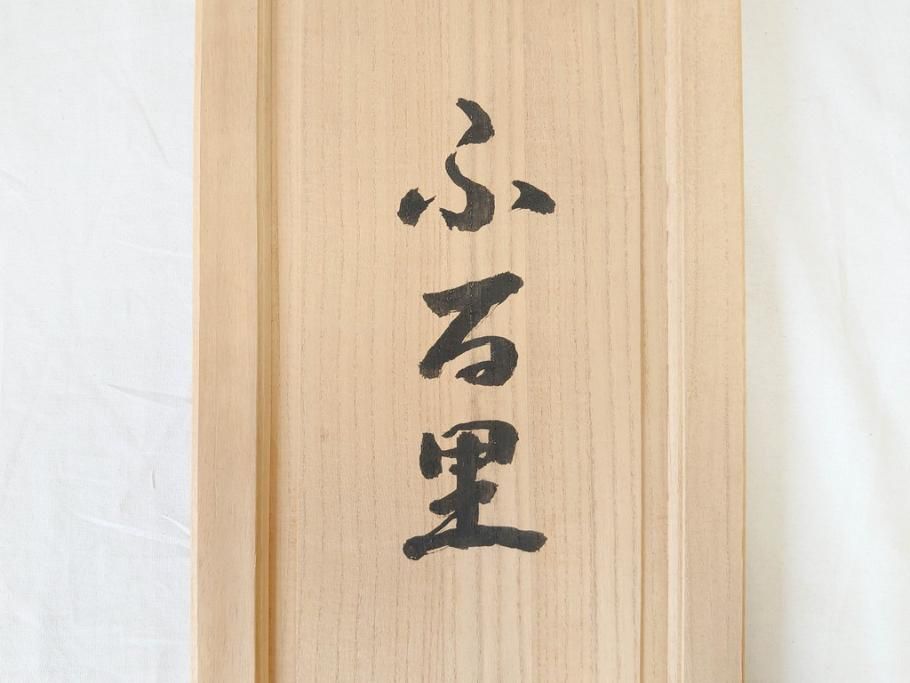 ふる里